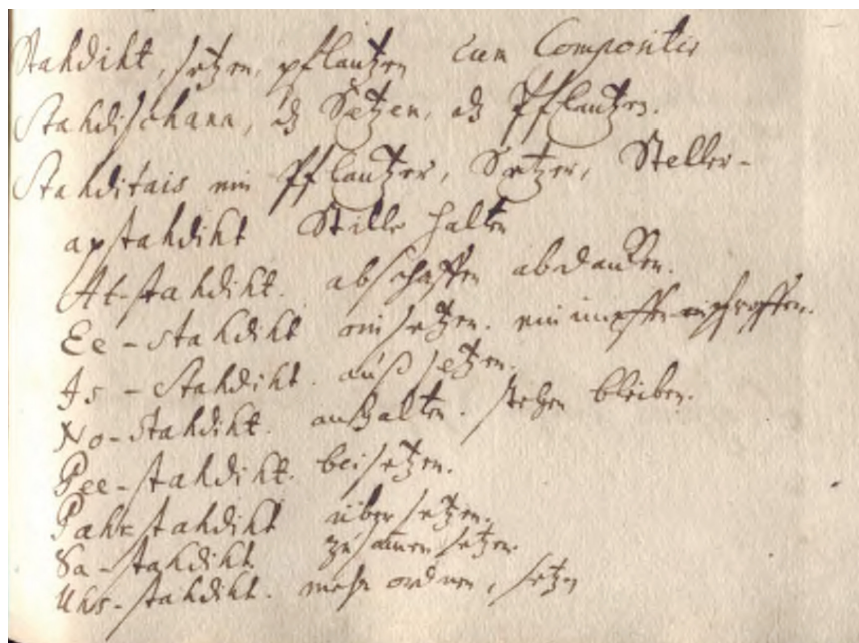 Stahdiht, setzen, pflantzen cum Compositis
Stahdischana, dz Setzen, dz Pflantzen.
Stahditais ein Pflantzer, Setzer, Steller-
apstahdiht Stille halten
At-stahdiht. abschaffen abdancken.
Ee-stahdiht einsetzen. einimpffen einpfropffen.
Is-stahdiht. außsetzen.
No-stahdiht. außhalten. stehen bleiben.
Pee-stahdiht. beisetzen.
Pahr stahdiht übersetzen.
Sa-stahdiht. zusamen setzen.
Uhs-stahdiht. ordnen, setzen